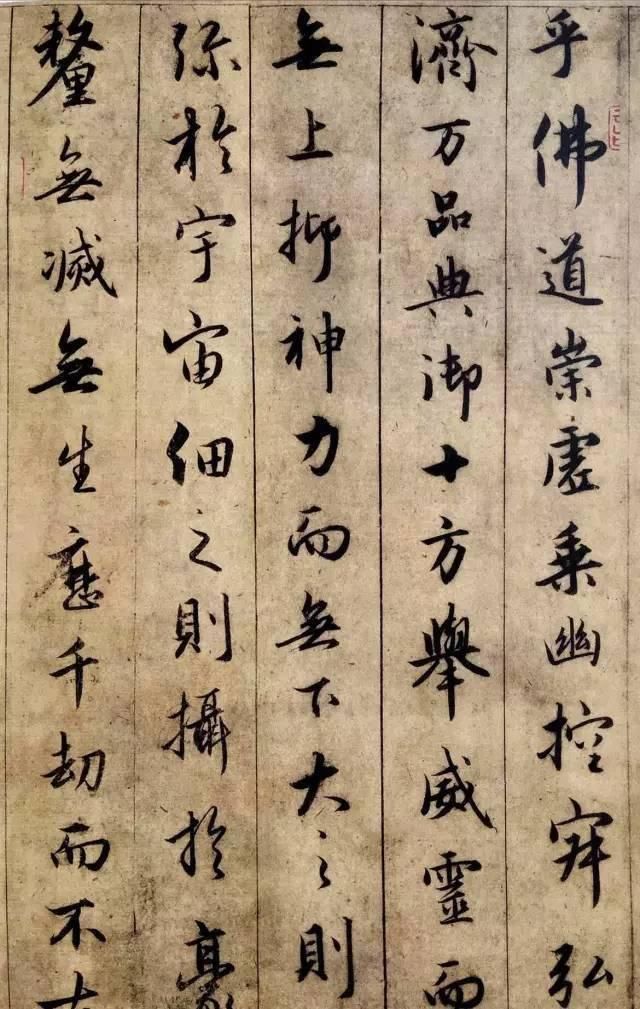 乎佛道崇虛乘幽控寂弘
濟万品典御十方舉威靈而
無上抑神力而無下大之則
弥於宇宙細之則攝於豪
釐無滅無生應千劫而不